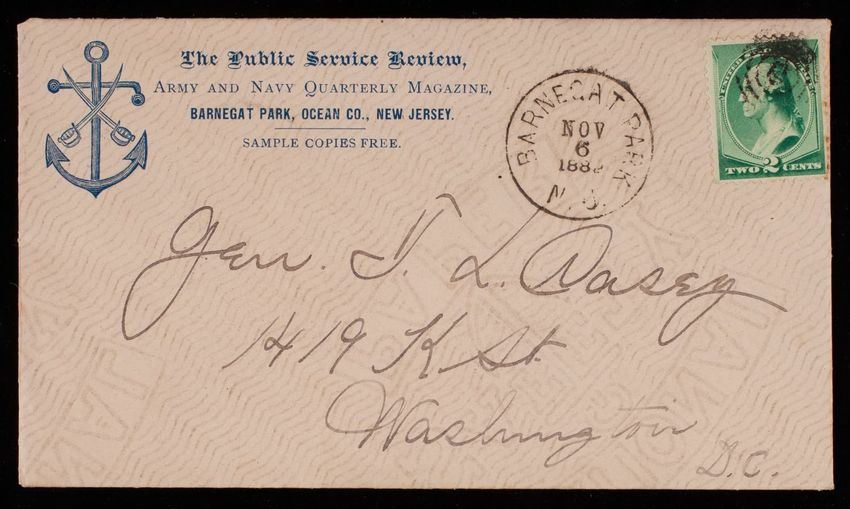 The Public Service Review,
ARMY AND NAVY QUARTERLY MAGAZINE,
BARNEGAT PARK, OCEAN CO., NEW JERSEY.
SAMPLE COPIES FREE.
BARNEGAT PARK
NOV
6
N.J.
UNITED
TWO 2 CENTS
Gen. T. L. Casey
1419 K St.
Washington
D.C.